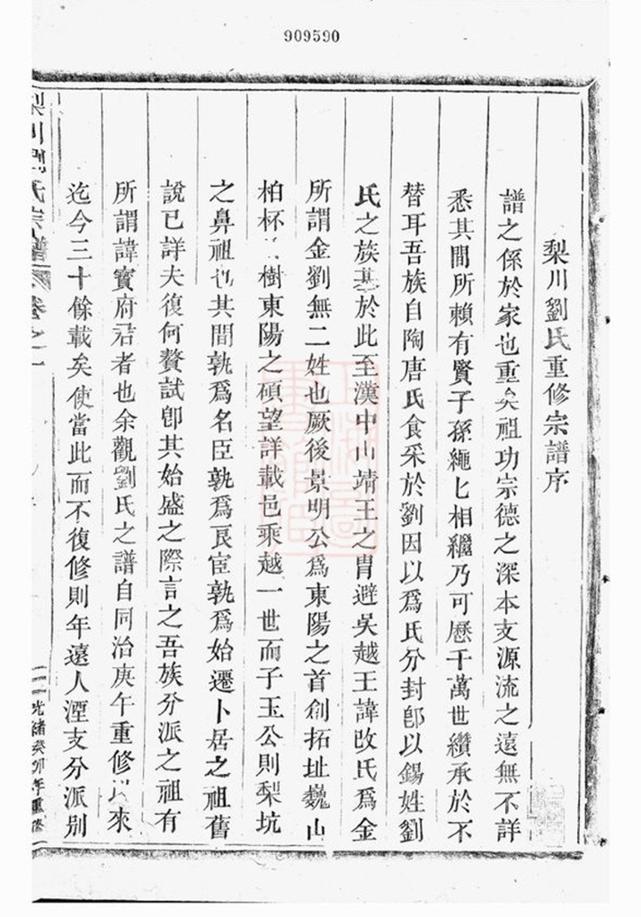 909590
梨川劉氏重修宗譜序
譜之係於家也重矣祖功宗德之深本支源流之遠無不詳
悉其間所賴有賢子孫繩匕相繼乃可歷千萬世纘承於不
替耳吾族自陶唐氏食采於劉因以爲氏分封卽以錫姓劉
氏之族基於此至漢中山靖王之胄避吳越王諱改氏爲金
所謂金劉無二姓也厥後景明公爲東陽之首創拓址巍山
柏杯 樹東陽之碩望詳載邑乘越一世而子玉公則梨坑
之鼻祖也其間孰爲名臣孰爲良宦孰爲始遷卜居之祖舊
說已詳夫復何贅試卽其始盛之際言之吾族分派之祖有
所謂諱寶府君者也余觀劉氏之譜自同治庚午重修以來
迄今三十餘載矣使當此而不復修則年遠人湮支分派別
梨川劉氏宗譜 卷之一
一 光緒癸卯年重修